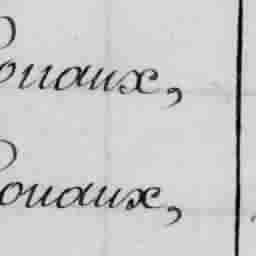 ouaux,
ouaux,